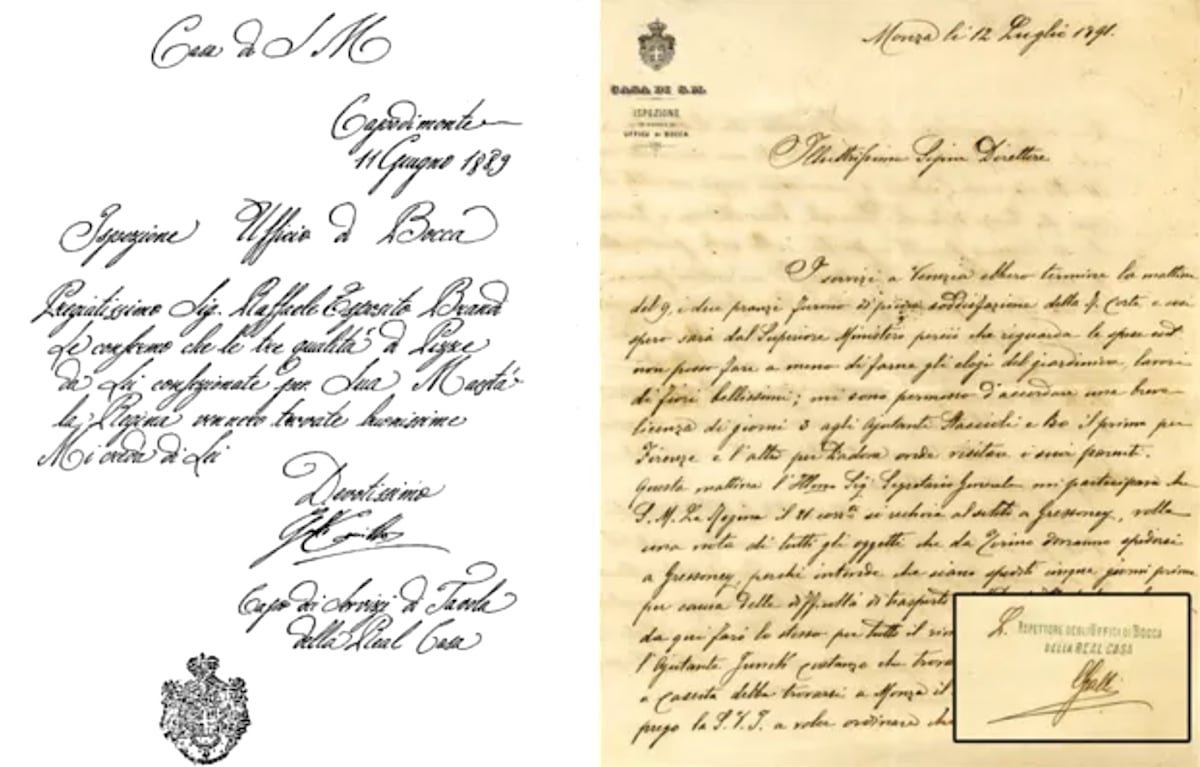 Casa di S M
Capodimonte
11 Giugno 1889
Ispezione Ufficio di Bocca
Pregiatissimo Sig. Raffaele Esposito Brandi
Le confermo che le tre qualità di Pizze
da Lei confezionate per Sua Maestà
la Regina vennero trovate buonissime
Mi creda di Lei
Devotissimo
Galli Camillo
Capo dei Servizi di Tavola
della Real Casa
CASA DI S.M.
ISPEZIONE
UFFICI DI BOCCA
Monza li 12 Luglio 1891.
Illustrissimo Signor Direttore
I servizi a Venezia ebbero termine la mattina
del 9, i due pranzi furono di piena soddisfazione della R. Corte e
spero sarà dal Superiore Ministero perciò che riguarda le spese
non posso fare a meno di farne gli elogi del giardiniere, lavori
di fiori bellissimi; mi sono permesso d'accordare una breve
licenza di giorni 3 agli Ajutante e Bo il primo per
Firenze e l'altro per Padova onde visitare i suoi parenti.
Questa mattina l'Illmo Sig. Segretario Generale mi partecipava che
S. M. La Regina il 21 corrte si recherà a Gressoney, volle
una nota di tutti gli oggetti che da Torino dovranno spedirsi
a Gressoney, perchè intende che siano spediti cinque giorni prima
per causa delle difficoltà di trasporti
da qui farò lo stesso per tutto il
l'Ajutante costanza che
e Cassetta debba trovarsi a Monza il
prego la S.V.I. a voler ordinare che
L'ISPETTORE DEGLI UFFICI DI BOCCA
DELLA REAL CASA
Galli